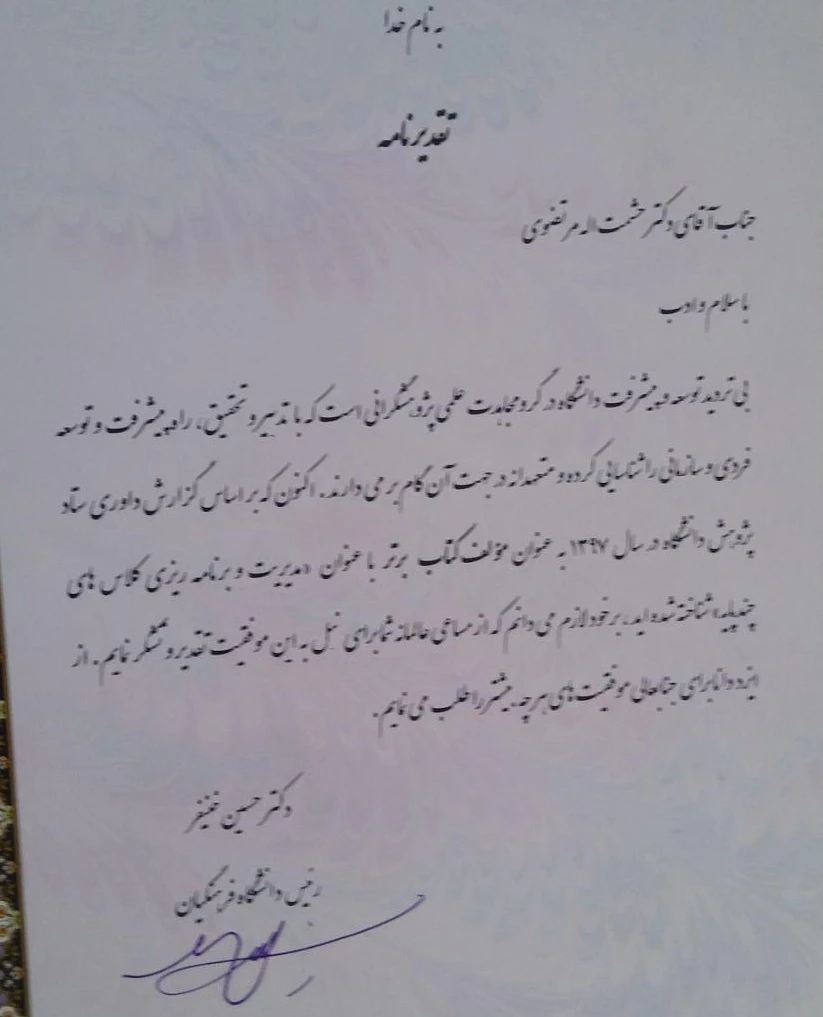 به نام خدا
تقدیرنامه
جناب آقای دکتر حشمت اله مرتضوی
با سلام و ادب
بی تردید توسعه و پیشرفت دانشگاه در گرو مجاهدت علمی پژوهشگرانی است که با تدبیر و تحقیق، راه پیشرفت و توسعه
فردی و سازمانی را شناسایی کرده و متعهدانه در جهت آن گام بر می دارند. اکنون که بر اساس گزارش داوری ستاد
پژوهش دانشگاه در سال ۱۳۹۷ به عنوان مؤلف کتاب برتر با عنوان «مدیریت و برنامه ریزی کلاس های
چندپایه» شناخته شده اید، بر خود لازم می دانم که از مساعی عالمانه شما برای نیل به این موفقیت تقدیر و تشکر نمایم. از
ایزد دانا برای جنابعالی موفقیت های هر چه بیشتر را طلب می نمایم.
دکتر حسین خنیفر
رئیس دانشگاه فرهنگیان